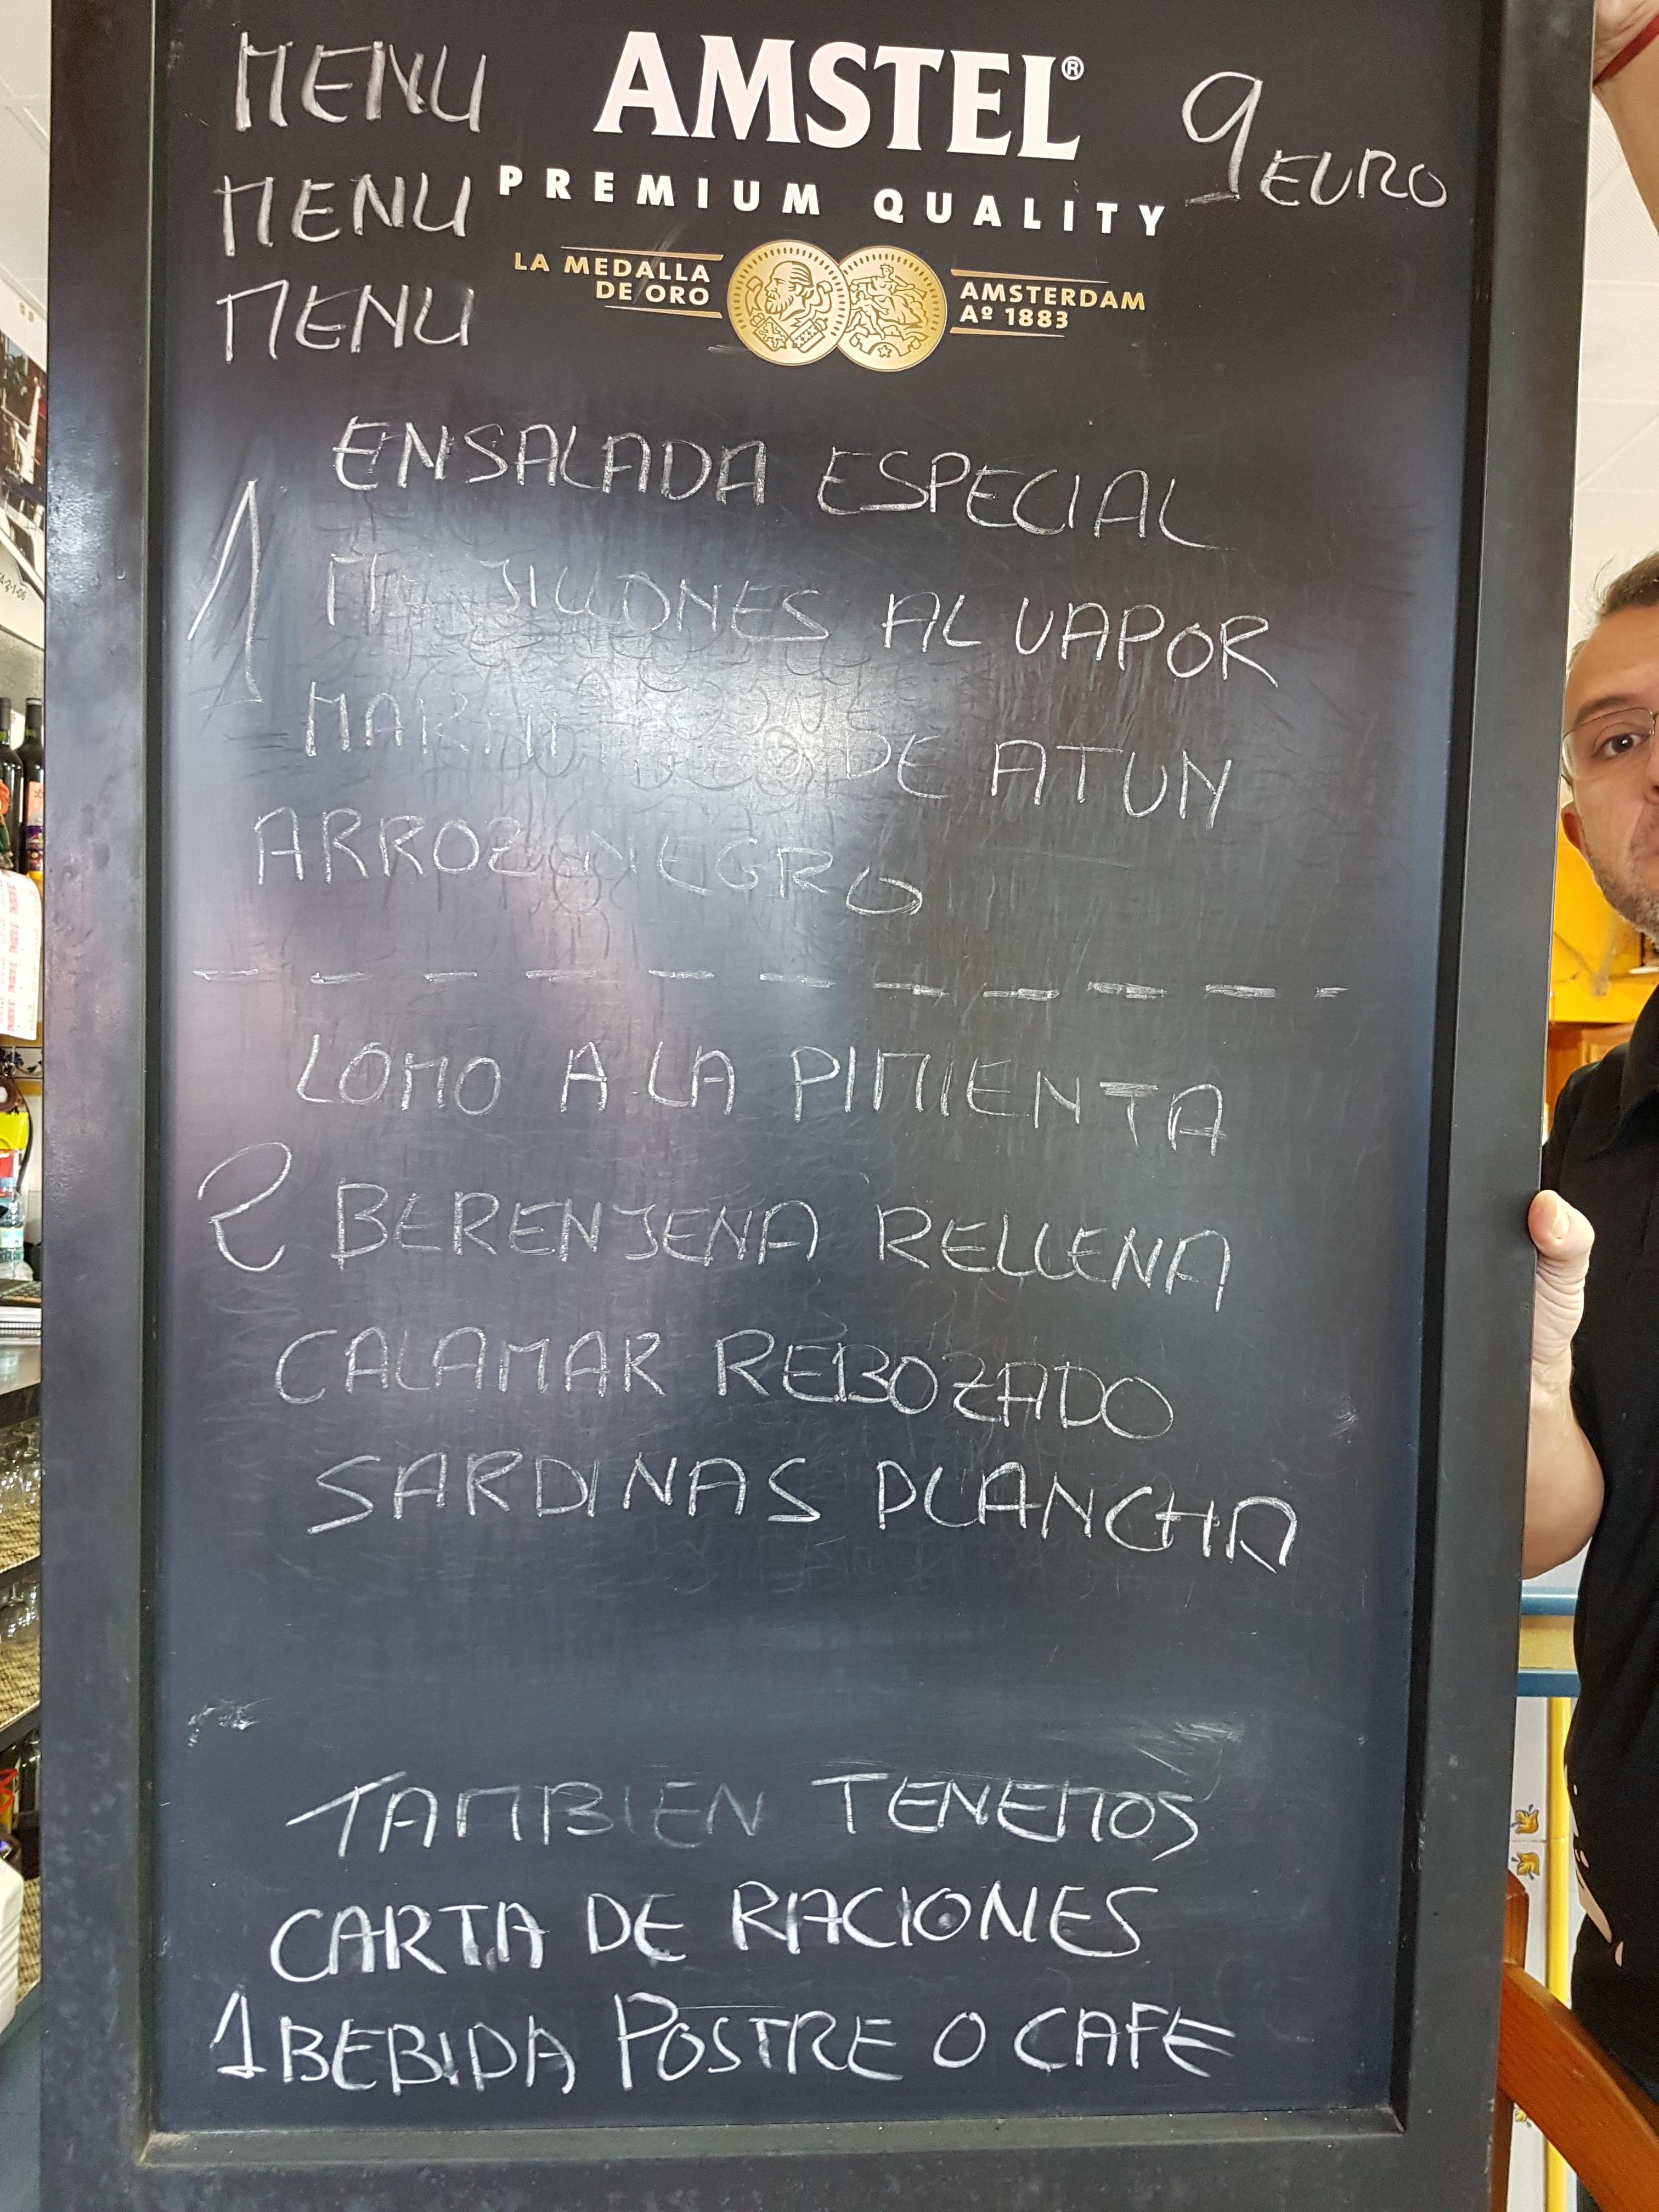 MENU AMSTEL® 9 EURO
MENU PREMIUM QUALITY
LA MEDALLA DE ORO AMSTERDAM Aº 1883
MENU
ENSALADA ESPECIAL
1 MEJILLONES AL VAPOR
MARMITAKO DE ATUN
ARROZ NEGRO
LOMO A LA PIMIENTA
2 BERENJENA RELLENA
CALAMAR REBOZADO
SARDINAS PLANCHA
TAMBIEN TENEMOS
CARTA DE RACIONES
1 BEBIDA POSTRE O CAFE